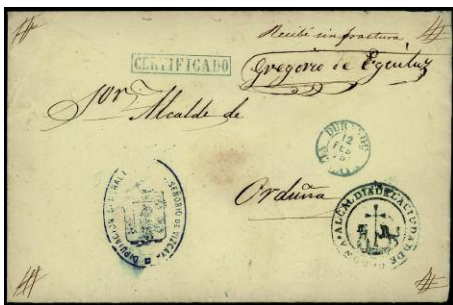 Recibí sin fractura
Gregorio de Eguiluz
CERTIFICADO
Sor. Alcalde de
DURANGO
12
FEB
Orduña
DIPUTACION GENERAL DEL SEÑORIO DE VIZCAYA
ALCALDIA DE LA CIUDAD DE ORDUÑA